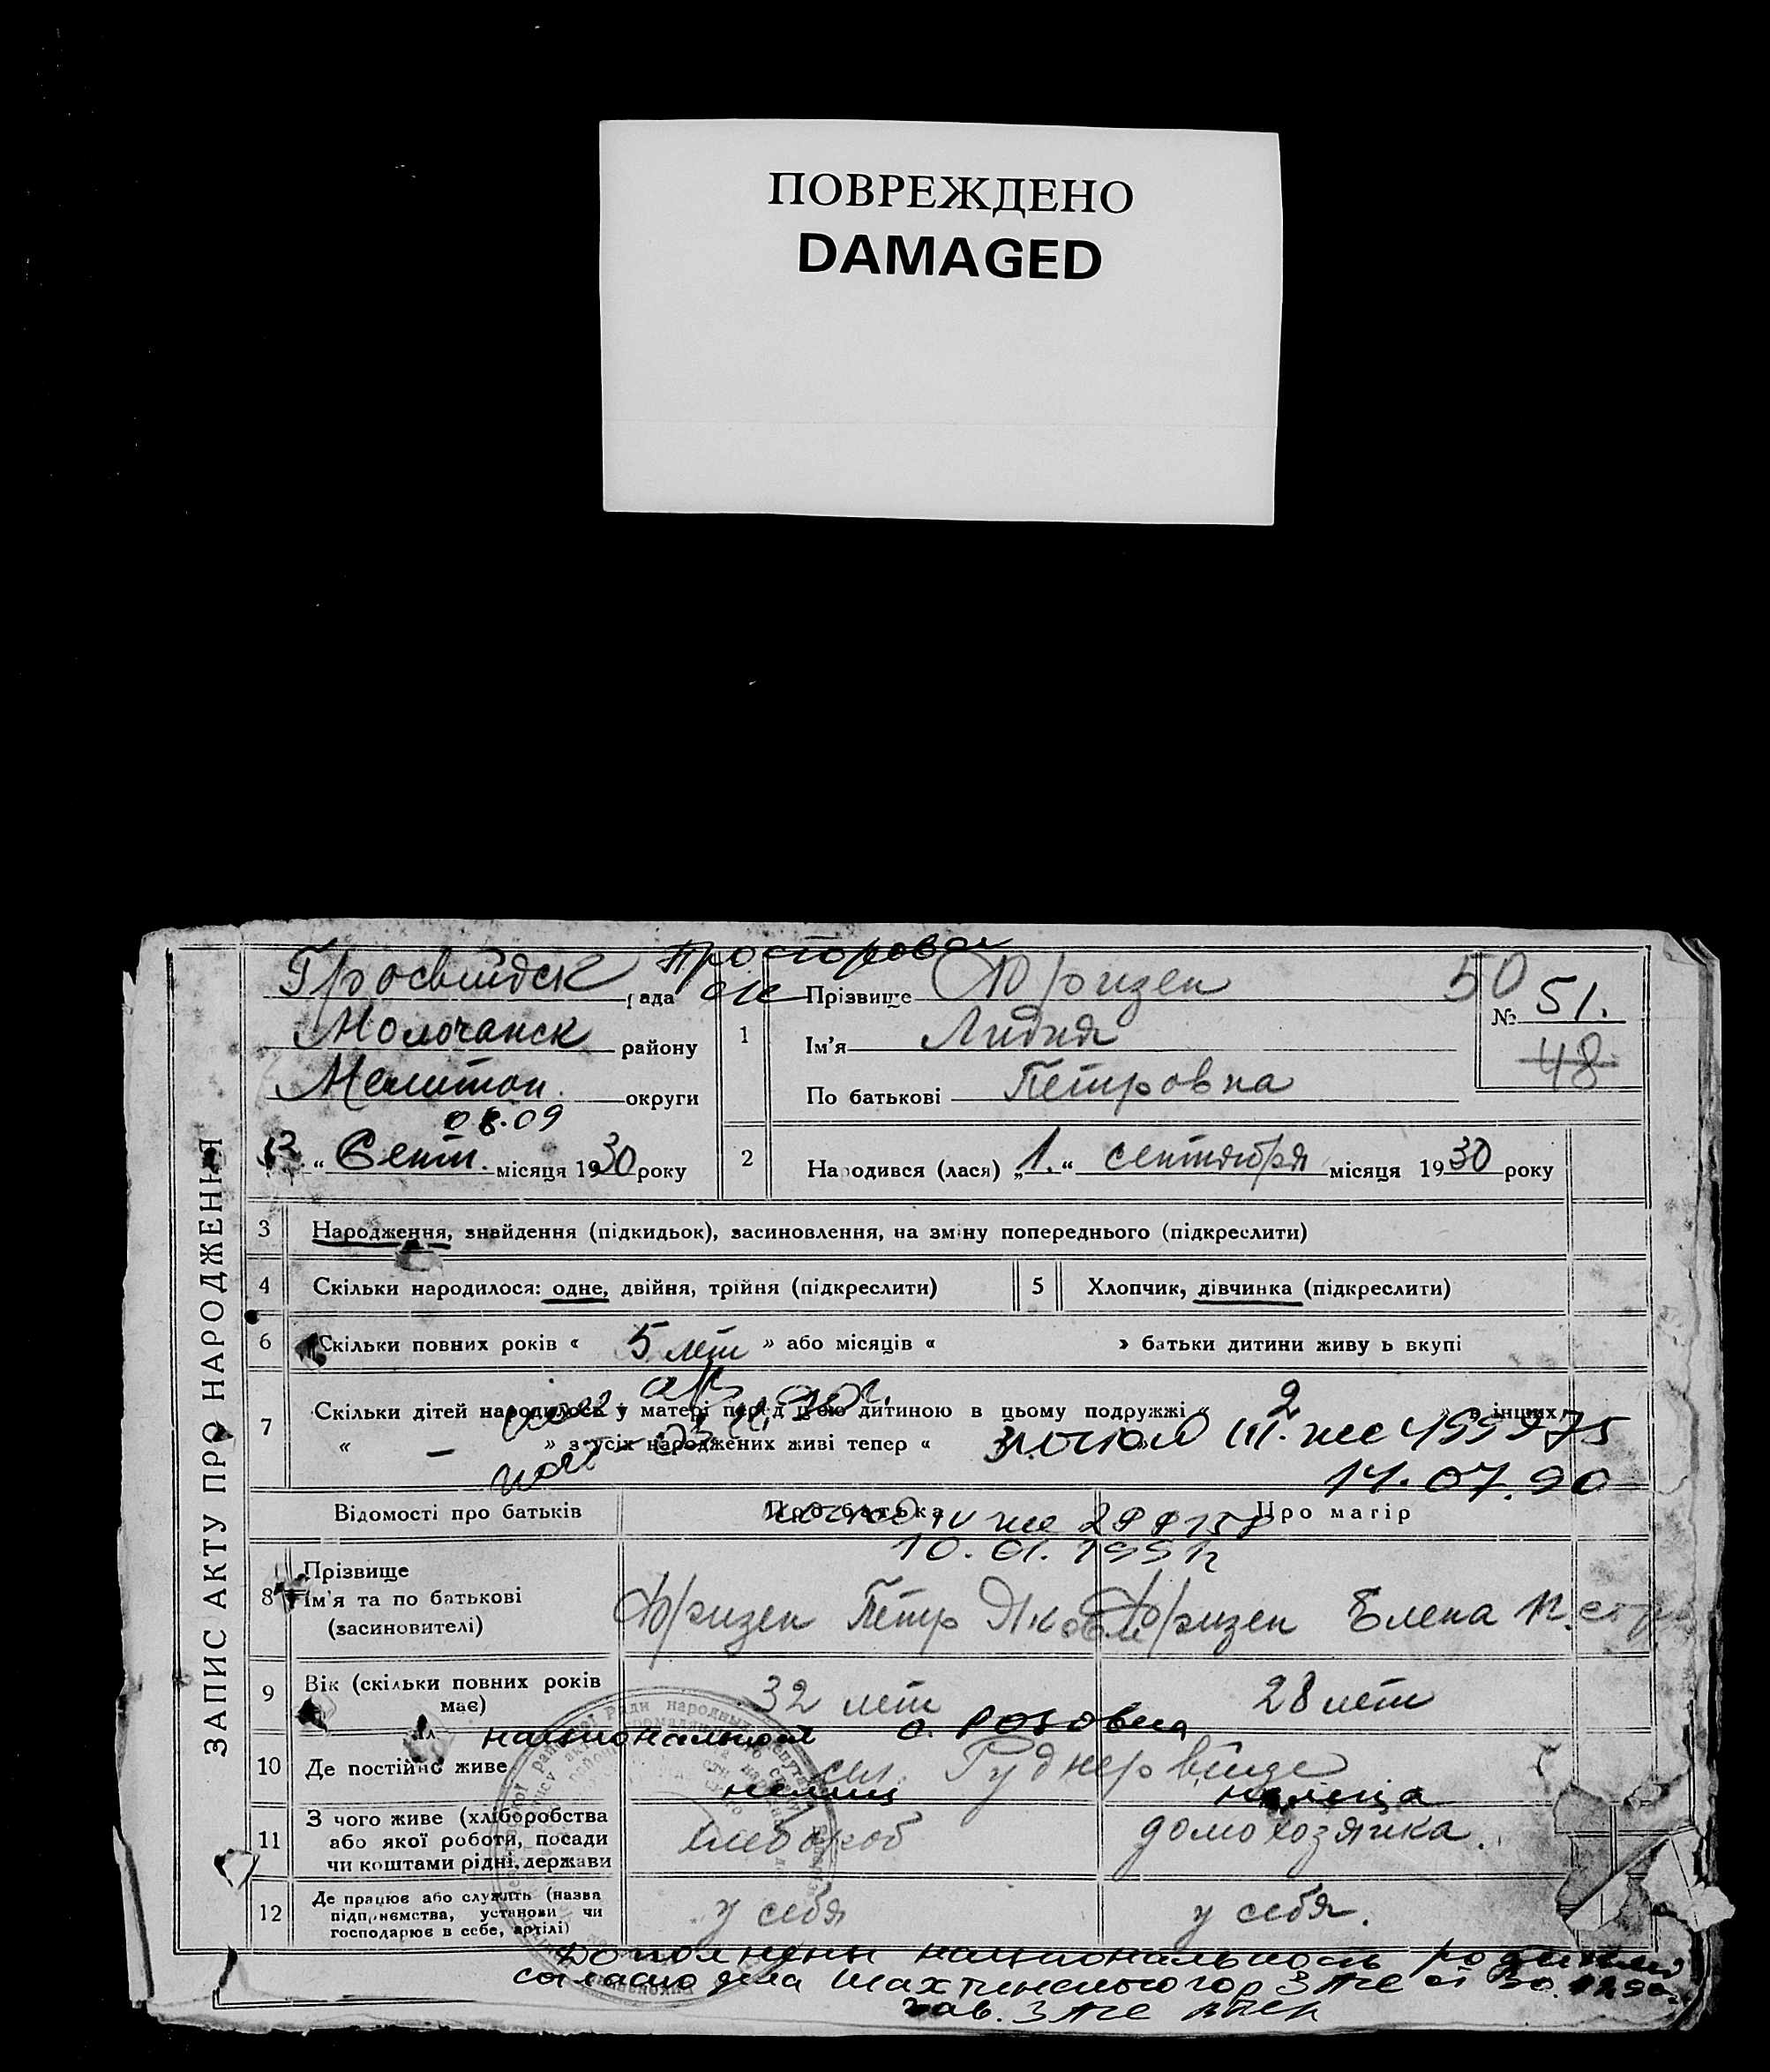 ПОВРЕЖДЕНО
DAMAGED
ЗАПИС АКТУ ПРО НАРОДЖЕННЯ
Гросвейдск рада
Молочанск району
Мелитоп. округи
08.09
13 " Сент. місяця 1930 року
1
Прізвище Фризен
Ім'я Лидия
По батькові Петровна
50
№ 51.
48
2 Народився (лася) „1." сентября місяця 1930 року
3 Народження, знайдення (підкидьок), засиновлення, на зміну попереднього (підкреслити)
4 Скільки народилося: одне, двійня, трійня (підкреслити)
5 Хлопчик, дівчинка (підкреслити)
6 Скільки повних років « 5 лет » або місяців « » батьки дитини живуть вкупі
7 Скільки дітей народилось у матері перед цією дитиною в цьому подружжі « 2 » в інших
« — » з усіх народжених живі тепер «
III. же 499975
14.07.90
Відомості про батьків
Про батька
Про матір
10.01.1991г
8 Прізвище
Ім'я та по батькові
(засиновителі)
Фризен Петр Яковл
Фризен Елена Петр
9 Вік (скільки повних років
має)
32 лет
28 лет
национальност с. Розовка
10 Де постійно живе
сел. Руднервейде
немец
немца
11 З чого живе (хліборобства
або якої роботи, посади
чи коштами рідні, держави
хлебороб
домохозяйка.
12 Де працює або служить (назва
підприємства, установи чи
господарює в себе, артілі)
у себя
у себя.
Дополнены национальность родителей
согласно дела Шахтинского гор ЗАГС от 30.12.90г.
зав. ЗАГС